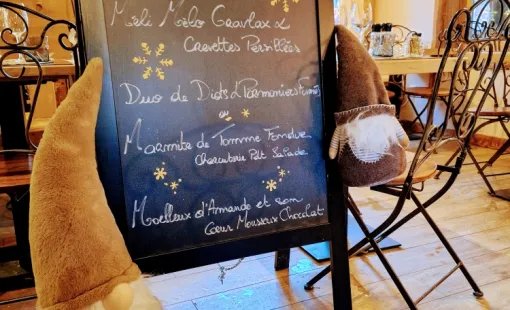 Méli Mélo Gravlax &
Crevettes Persillées
Duo de Diots & Pormoniers Fumés
ou
Marmite de Tomme Fondue
Charcuterie Petit Salade
Moelleux d'Amande et son
Cœur Mousseux Chocolat